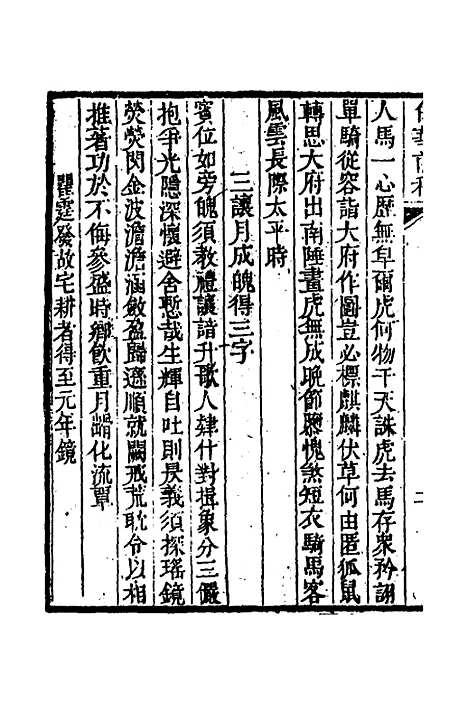 人馬一心歷無阜爾虎何物干天誅虎去馬存衆矜詡
單騎從容詣大府作圖豈必標麒麟伏草何由匿狐鼠
轉思大府出南陲畫虎無成晚節隳愧煞短衣騎馬客
風雲長際太平時
三讓月成魄得三字
賓位如旁魄須教禮讓諳升歌人肄什對揖象分三儼
抱爭光隱深懷避舍慙哉生輝自吐則是義須探瑤鏡
熒熒閃金波澹澹涵斂盈歸遜順就闕戒荒耽令以相
推著功於不侮參盛時鄉飲重月端化流覃
瞿霆發故宅耕者得至元年鏡
二